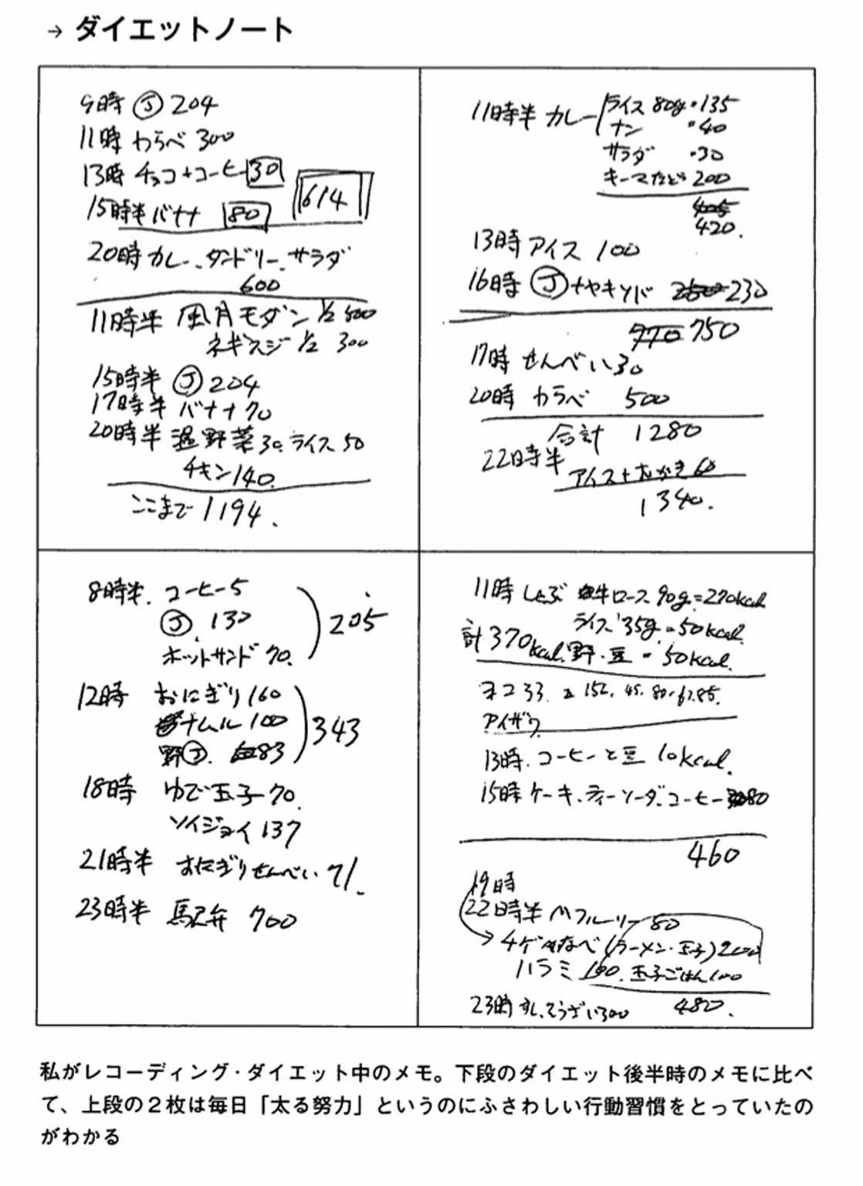 → ダイエットノート
9時 Ⓙ 204
11時 わらべ 300
13時 チョコ+コーヒー 30
15時半 バナナ 80
614
20時 カレー、タンドリー、サラダ
600
11時半 風月モダン 1/2 500
ネギスジ 1/2 300
15時半 Ⓙ 204
17時半 バナナ 70
20時半 温野菜 30、ライス 50
チキン 140
ここまで 1194.
11時半 カレー ライス 80g・135
ナン ・40
サラダ ・30
キーマなど 200
420.
13時 アイス 100
16時 Ⓙ+ヤキソバ 230
770 750
17時 せんべい 30
20時 わらべ 500
合計 1280
22時半
アイス+ 60
1340.
8時半. コーヒー 5
Ⓙ 130
ホットサンド 70.
205
12時 おにぎり 160
ナムル 100
野Ⓙ. 83
343
18時 ゆで玉子 70.
ソイジョイ 137
21時半 おにぎりせんべい 71.
23時半 弁 700
11時 しゃぶ 牛ロース 90g.=270kcal
ライス 35g.=50kcal.
計370kcal. 野・豆 = 50kcal.
ネコ 33.
アイザワ
13時. コーヒーと豆 10kcal.
15時 ケーキ、ティーソーダ、コーヒー 80
460
19時
22時半 Mフルーリー 80
なべ(ラーメン・玉子)200
ハラミ 100. 玉子ごはん 100
480.
23時 すし、 300
私がレコーディング・ダイエット中のメモ。下段のダイエット後半時のメモに比べ
て、上段の2枚は毎日「太る努力」というのにふさわしい行動習慣をとっていたの
がわかる